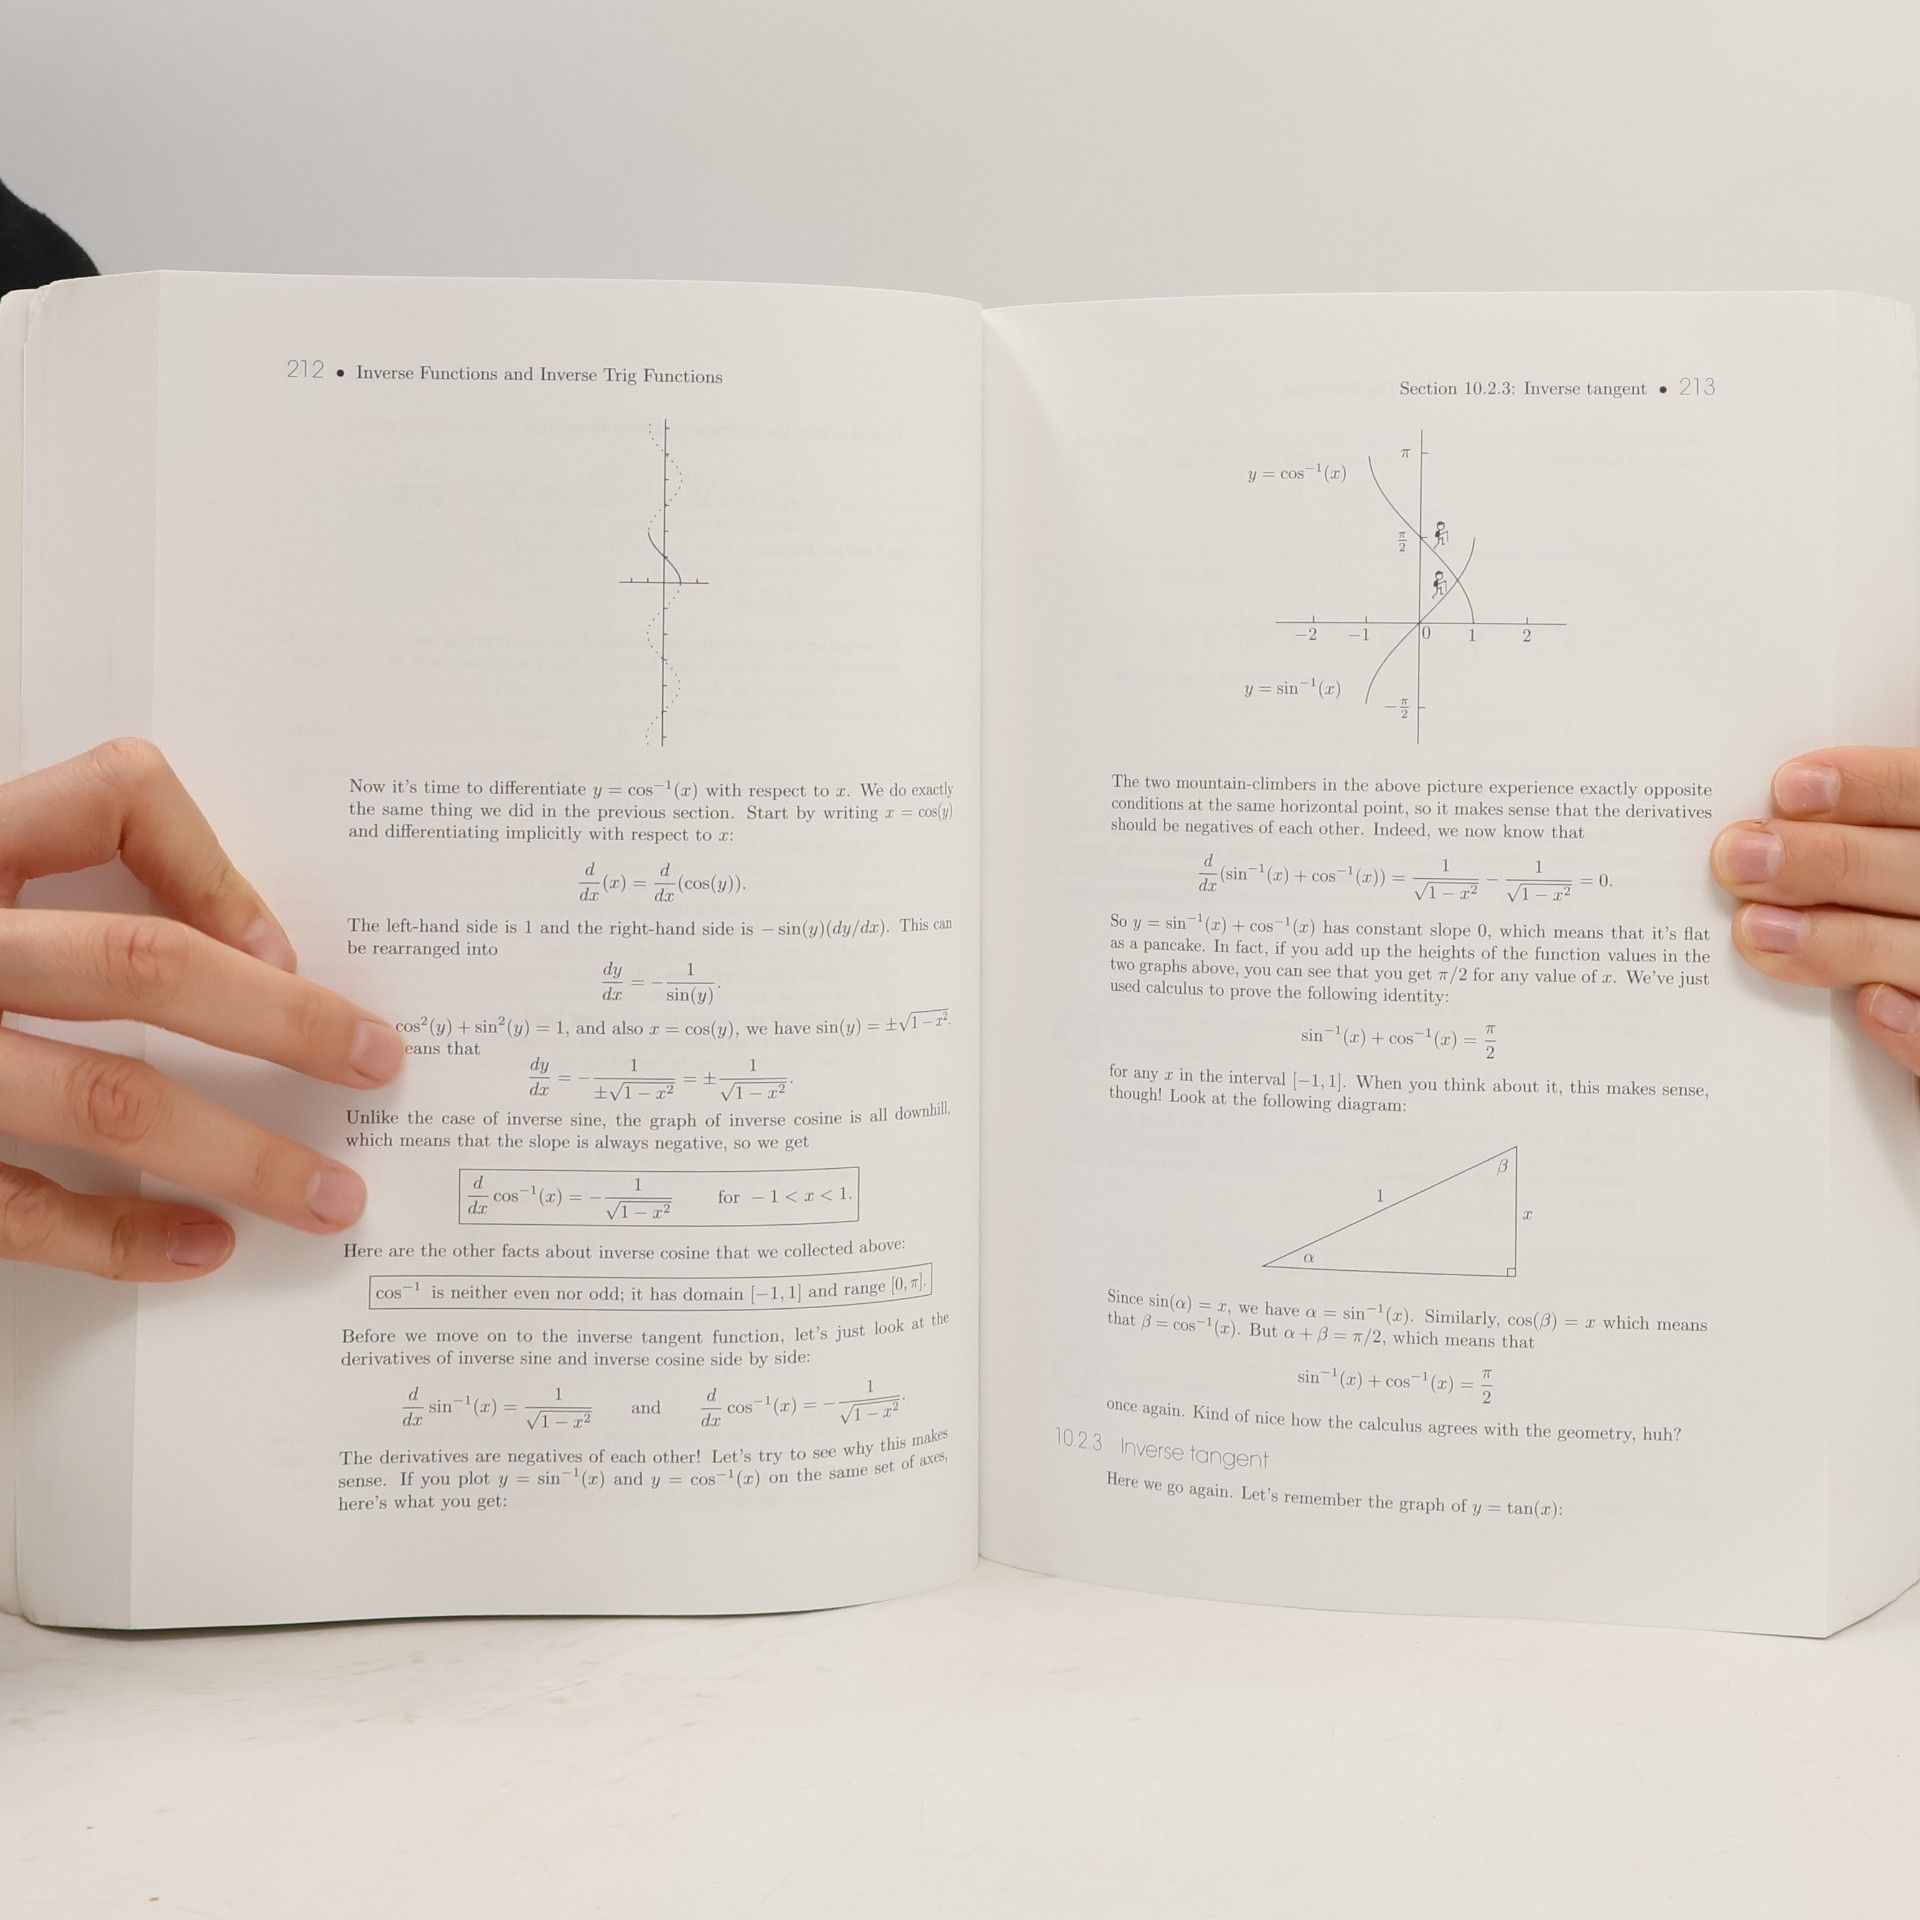 212 • Inverse Functions and Inverse Trig Functions
Now it's time to differentiate y = cos⁻¹(x) with respect to x. We do exactly
the same thing we did in the previous section. Start by writing x = cos(y)
and differentiating implicitly with respect to x:
d/dx (x) = d/dx (cos(y)).
The left-hand side is 1 and the right-hand side is − sin(y)(dy/dx). This can
be rearranged into
dy/dx = − 1/sin(y).
cos²(y) + sin²(y) = 1, and also x = cos(y), we have sin(y) = ±√(1 − x²).
that
dy/dx = − 1/(±√(1 − x²)) = ± 1/√(1 − x²).
Unlike the case of inverse sine, the graph of inverse cosine is all downhill,
which means that the slope is always negative, so we get
d/dx cos⁻¹(x) = − 1/√(1 − x²) for − 1 < x < 1.
Here are the other facts about inverse cosine that we collected above:
cos⁻¹ is neither even nor odd; it has domain [−1, 1] and range [0, π].
Before we move on to the inverse tangent function, let's just look at the
derivatives of inverse sine and inverse cosine side by side:
d/dx sin⁻¹(x) = 1/√(1 − x²) and d/dx cos⁻¹(x) = − 1/√(1 − x²).
The derivatives are negatives of each other! Let's try to see why this makes
sense. If you plot y = sin⁻¹(x) and y = cos⁻¹(x) on the same set of axes,
here's what you get:
Section 10.2.3: Inverse tangent • 213
π
y = cos⁻¹(x)
π/2
−2 −1 0 1 2
y = sin⁻¹(x)
−π/2
The two mountain-climbers in the above picture experience exactly opposite
conditions at the same horizontal point, so it makes sense that the derivatives
should be negatives of each other. Indeed, we now know that
d/dx (sin⁻¹(x) + cos⁻¹(x)) = 1/√(1 − x²) − 1/√(1 − x²) = 0.
So y = sin⁻¹(x) + cos⁻¹(x) has constant slope 0, which means that it's flat
as a pancake. In fact, if you add up the heights of the function values in the
two graphs above, you can see that you get π/2 for any value of x. We've just
used calculus to prove the following identity:
sin⁻¹(x) + cos⁻¹(x) = π/2
for any x in the interval [−1, 1]. When you think about it, this makes sense,
though! Look at the following diagram:
β
1
x
α
Since sin(α) = x, we have α = sin⁻¹(x). Similarly, cos(β) = x which means
that β = cos⁻¹(x). But α + β = π/2, which means that
sin⁻¹(x) + cos⁻¹(x) = π/2
once again. Kind of nice how the calculus agrees with the geometry, huh?
10.2.3 Inverse tangent
Here we go again. Let's remember the graph of y = tan(x):